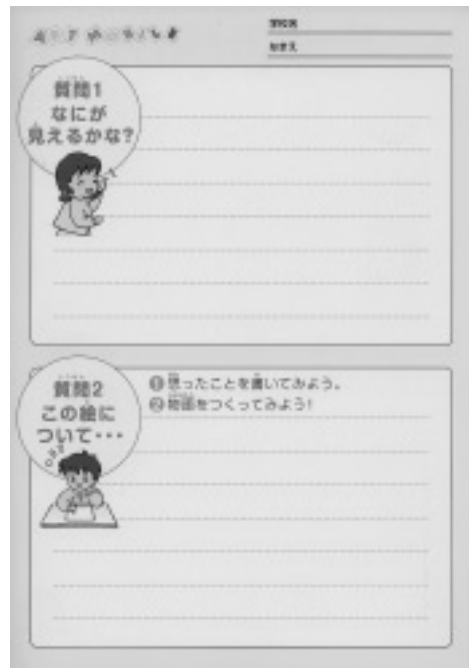 学校名
なまえ
質問1
なにが
見えるかな?
質問2
この絵に
ついて・・・
❶思ったことを書いてみよう。
❷物語をつくってみよう!